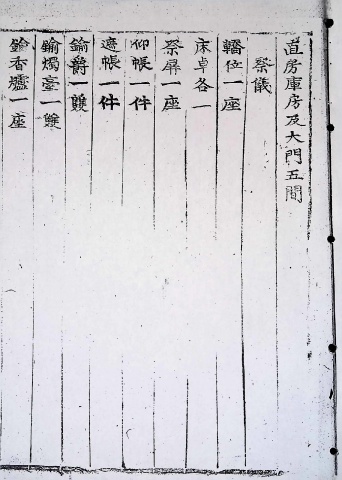 直房庫房及大門五間
祭儀
轎位一座
床卓各一
祭屛一座
仰帳一件
遮帳一件
鍮爵一雙
鍮燭臺一雙
鍮香爐一座